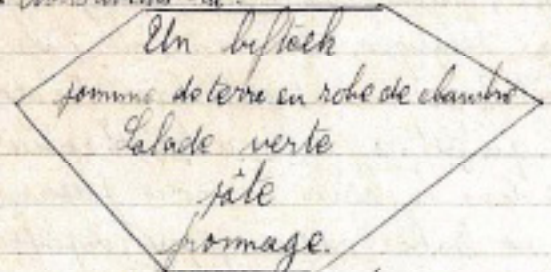 Un bifteck
pomme de terre en robe de chambre
Salade verte
pâte
fromage.